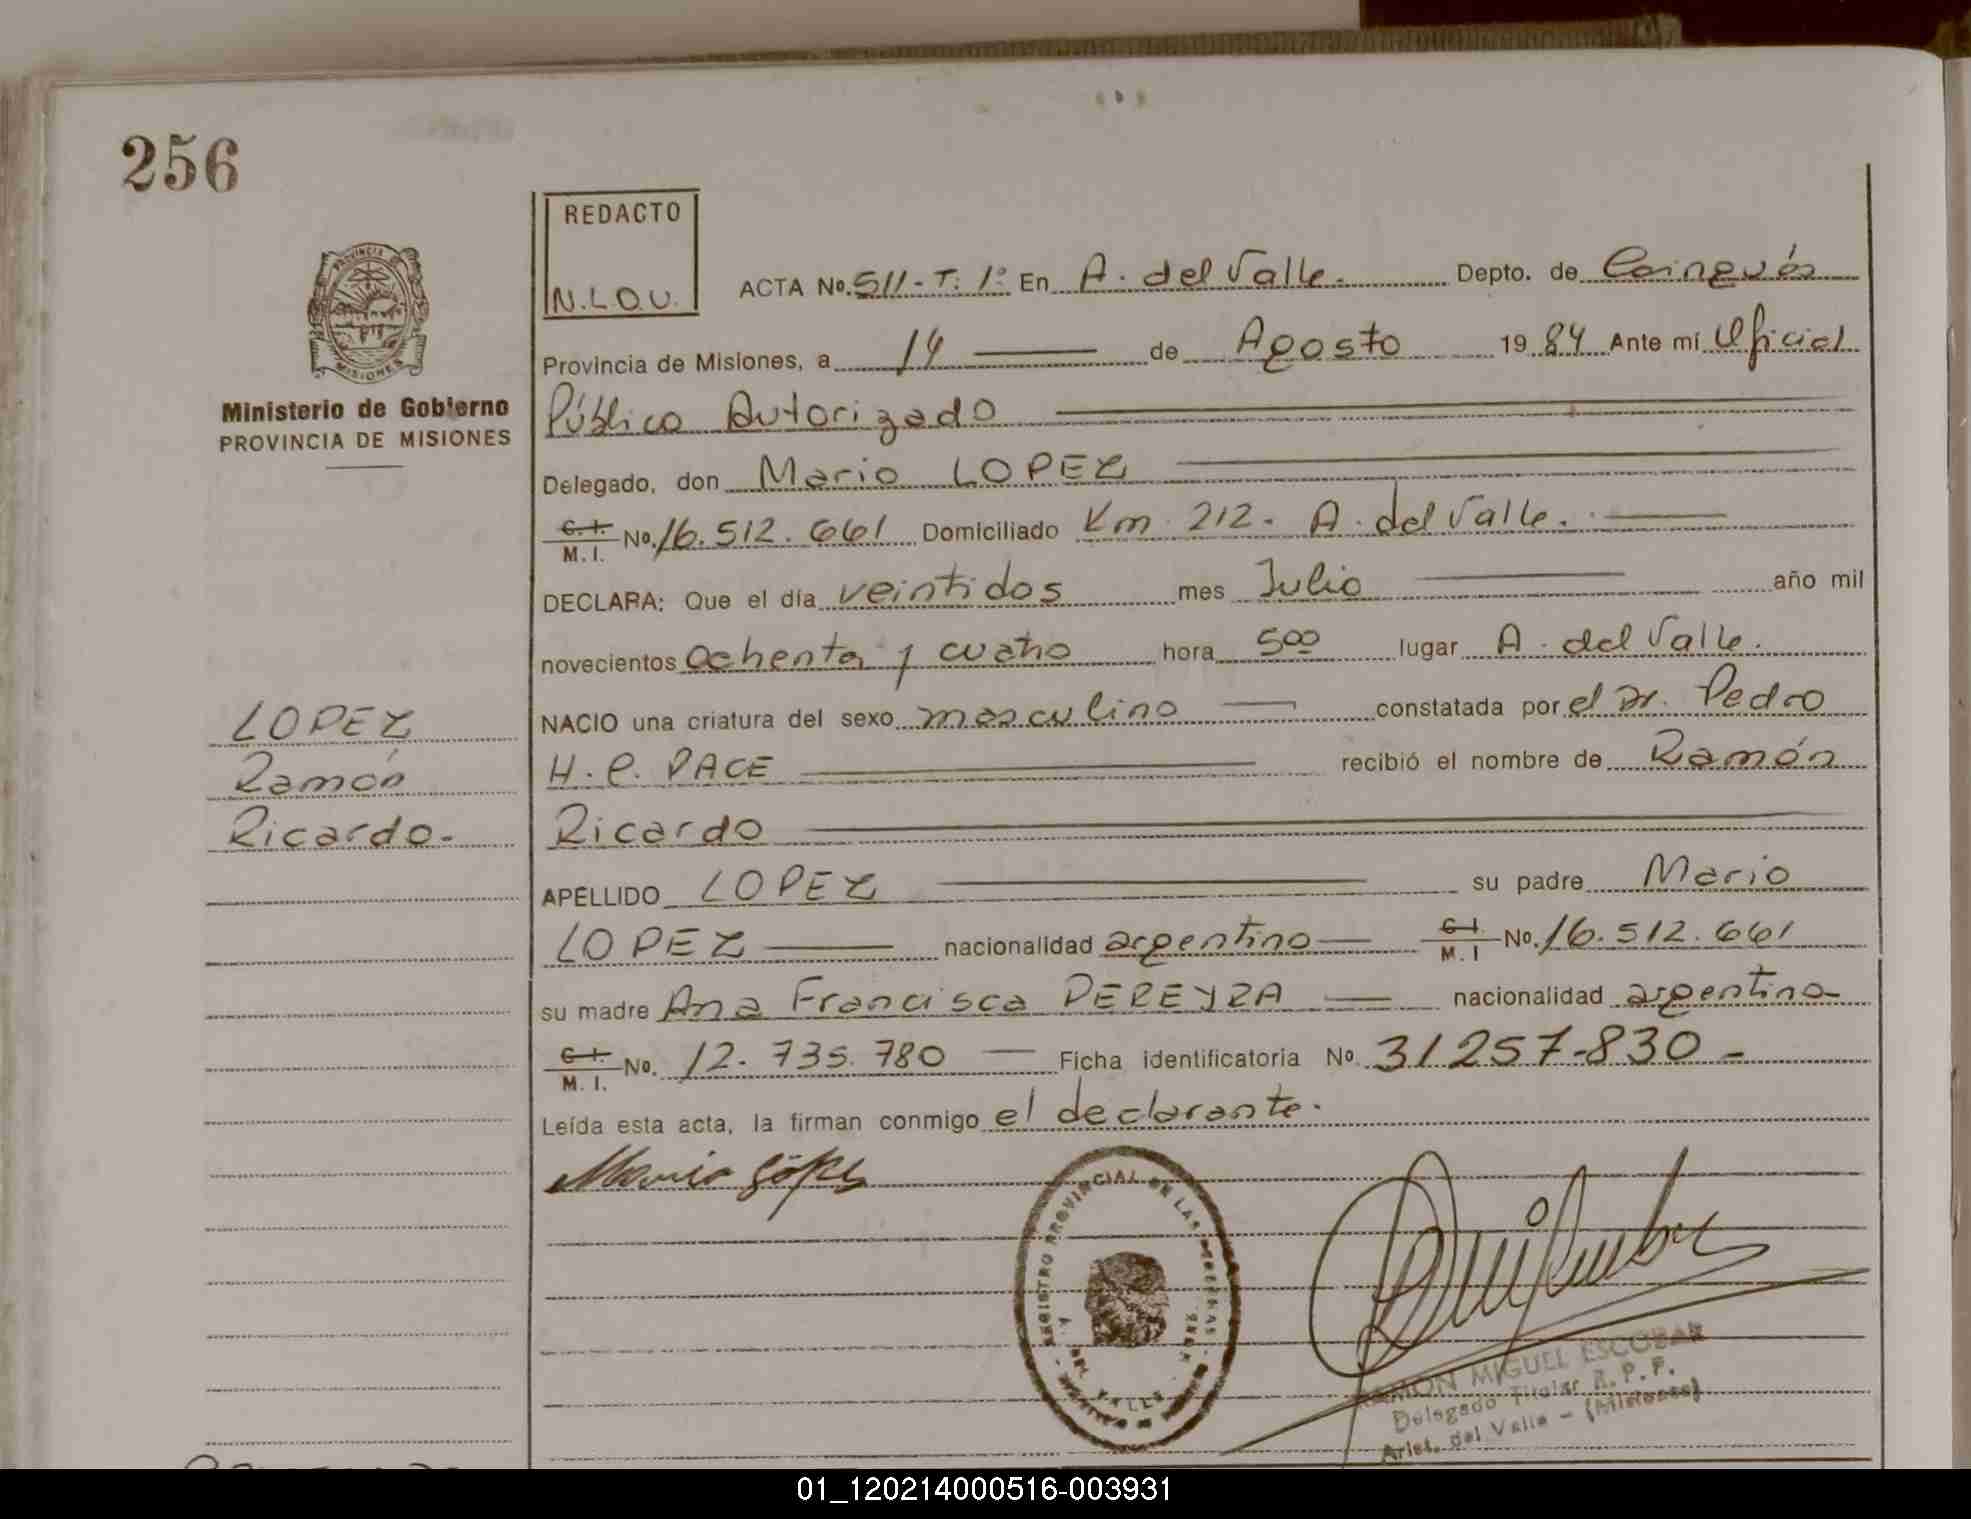 256
REDACTO
N.L.O.U.
ACTA No. 511-T. 1º En A. del Valle. Depto. de Cainguás
Provincia de Misiones, a 14 de Agosto 1984 Ante mí Oficial
Ministerio de Gobierno
PROVINCIA DE MISIONES
Público Autorizado
Delegado, don Mario LOPEZ
C.I. M.I. No. 16.512.661 Domiciliado Km 212. A. del Valle.
DECLARA: Que el día veintidos mes Julio año mil
novecientos ochenta y cuatro hora 500 lugar A. del Valle.
NACIO una criatura del sexo masculino constatada por el Dr. Pedro
H. C. PACE recibió el nombre de Ramón
Ricardo
LOPEZ
Ramón
Ricardo.-
APELLIDO LOPEZ su padre Mario
LOPEZ nacionalidad argentino C.I. M.I No. 16.512.661
su madre Ana Francisca PEREYRA nacionalidad argentina
C.I. M.I. No. 12.735.780 Ficha identificatoria No. 31257-830-
Leída esta acta, la firman conmigo el declarante.
Mario López
REGISTRO PROVINCIAL DE LAS PERSONAS
A. DEL VALLE
RAMON MIGUEL ESCOBAR
Delegado Titular R. P. P.
Arist. del Valle - (Misiones)
01_120214000516-003931